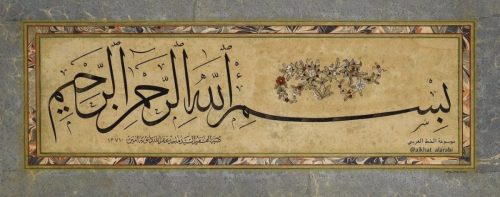 بسم الله الرحمن الرحيم
كتبه
موسوعة الخط العربي
@alkhat_alarabi